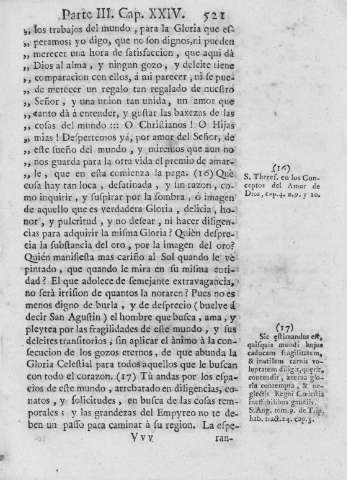 Parte III. Cap. XXIV. 521
,, los trabajos del mundo, para la Gloria que es-
,, peramos; yo digo, que no son dignos, ni pueden
,, merecer una hora de satisfaccion, que aqui dà
,, Dios al alma, y ningun gozo, y deleite tiene
,, comparacion con ellos, à mi parecer, ni se pue-
,, de merecer un regalo tan regalado de nuestro
,, Señor, y una union tan unida, un amor que
,, tanto dà à entender, y gustar las baxezas de las
,, cosas del mundo ::: O Christianos! O Hijas
,, mias! Despertemos yà, por amor del Señor, de
,, este sueño del mundo, y miremos que aun no
,, nos guarda para la otra vida el premio de amar-
,, le, que en esta comienza la paga. (16) Què
cosa hay tan loca, desatinada, y sin razon, co-
mo inquirir, y suspirar por la sombra, ò imagen
de aquello que es verdadera Gloria, delicia, ho-
nor, y pulcritud, y no desear, ni hacer diligen-
cias para adquirir la misma Gloria? Quièn despre-
cia la substancia del oro, por la imagen del oro?
Quièn manifiesta mas cariño al Sol quando le vè
pintado, que quando le mira en su misma enti-
dad? El que adolece de semejante extravagancia,
no serà irrision de quantos la notaren? Pues no es
menos digno de burla, y de desprecio (buelve à
decir San Agustin) el hombre que busca, ama, y
pleytea por las fragilidades de este mundo, y sus
deleites transitorios, sin aplicar el ànimo à la con-
secucion de los gozos eternos, de que abunda la
Gloria Celestial para todos aquellos que le buscan
con todo el corazon. (17) Tù andas por los espa-
cios de este mundo, arrebatado en diligencias, co-
natos, y solicitudes, en busca de las cosas tem-
porales: y las grandezas del Empyreo no te de-
ben un passo para caminar à su region. La espe-
Vvv ran-
(16)
S. Theres. en los Con-
ceptos del Amor de
Dios, cap. 4. n. 9. y 10.
(17)
Sic æstimandus est,
quisquis mundi hujus
caducam fragilitatem,
& inutilem carnis vo-
luptatem diligit, quærit,
contendit, æterna glo-
ria contempta, & ne-
glectis Regni Cœlestis
ineffabilibus gaudiis.
S. Aug. tom. 9. de Trip.
hab. tract. 24. cap. 3.